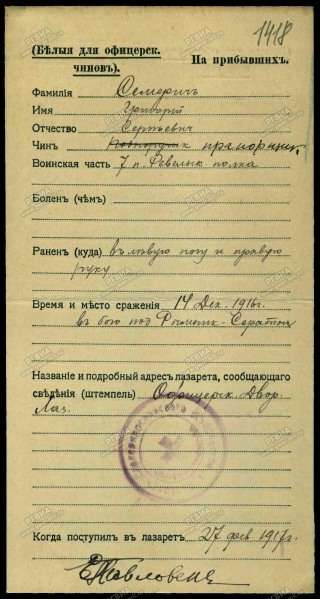 1418
(Бѣлыя для офицерск. чиновъ).
На прибывшихъ.
Фамилія Семеричъ
Имя Григорій
Отчество Сергѣевич
Чинъ прапорщик
Воинская часть 7 п. Ревельск полка
Боленъ (чѣмъ)
Раненъ (куда) въ лѣвую ногу и правую
руку
Время и мѣсто сраженія 14 Дек. 1916г.
въ бою под
Названіе и подробный адресъ лазарета, сообщающаго
свѣдѣнія (штемпель) Офицерск. Двор.
Лаз.
Когда поступилъ въ лазаретъ 27 фев. 1917г.